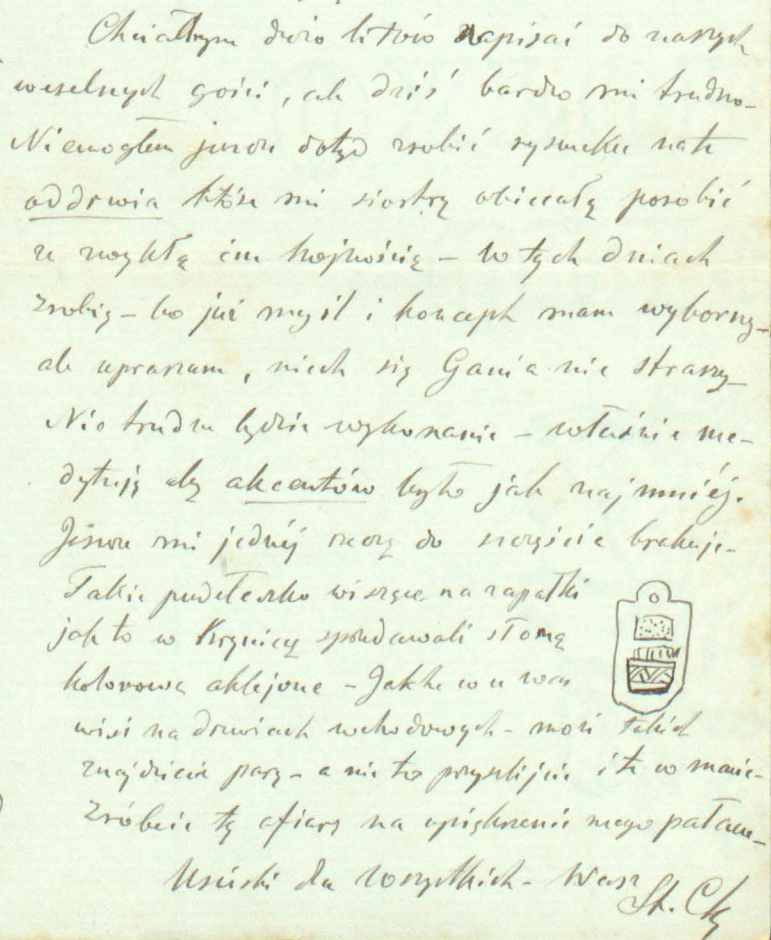 Chciałbym dużo listów napisać do naszych
weselnych gości, ale dziś bardzo mi trudno –
Niemogłem jeszcze dotąd zrobić rysunku na te
oddrwia które mi siostry obiecały porobić
z zwykłą im hojnością – w tych dniach
zrobię – bo już myśl i koncept mam wyborny –
ale upraszam, niech się Gania nie straszy –
Nie trudne będzie wykonanie – właśnie me-
dytuję aby akcentów było jak najmniéj.
Jeszcze mi jednéj rzeczy do szczęścia brakuje –
Takie pudełeczko wiszące na zapałki
jak to w Krynicy sprzedawali słomą
kolorową oklejone – Jakie to u was
wisi na drzwiach wchodowych – może takich
znajdziecie parę – a nie to przyslijcie i te w manie-
Zróbcie tę ofiarę na upiększenie mego pałacu –
Uściski dla Wszystkich – Wasz
St. Ck